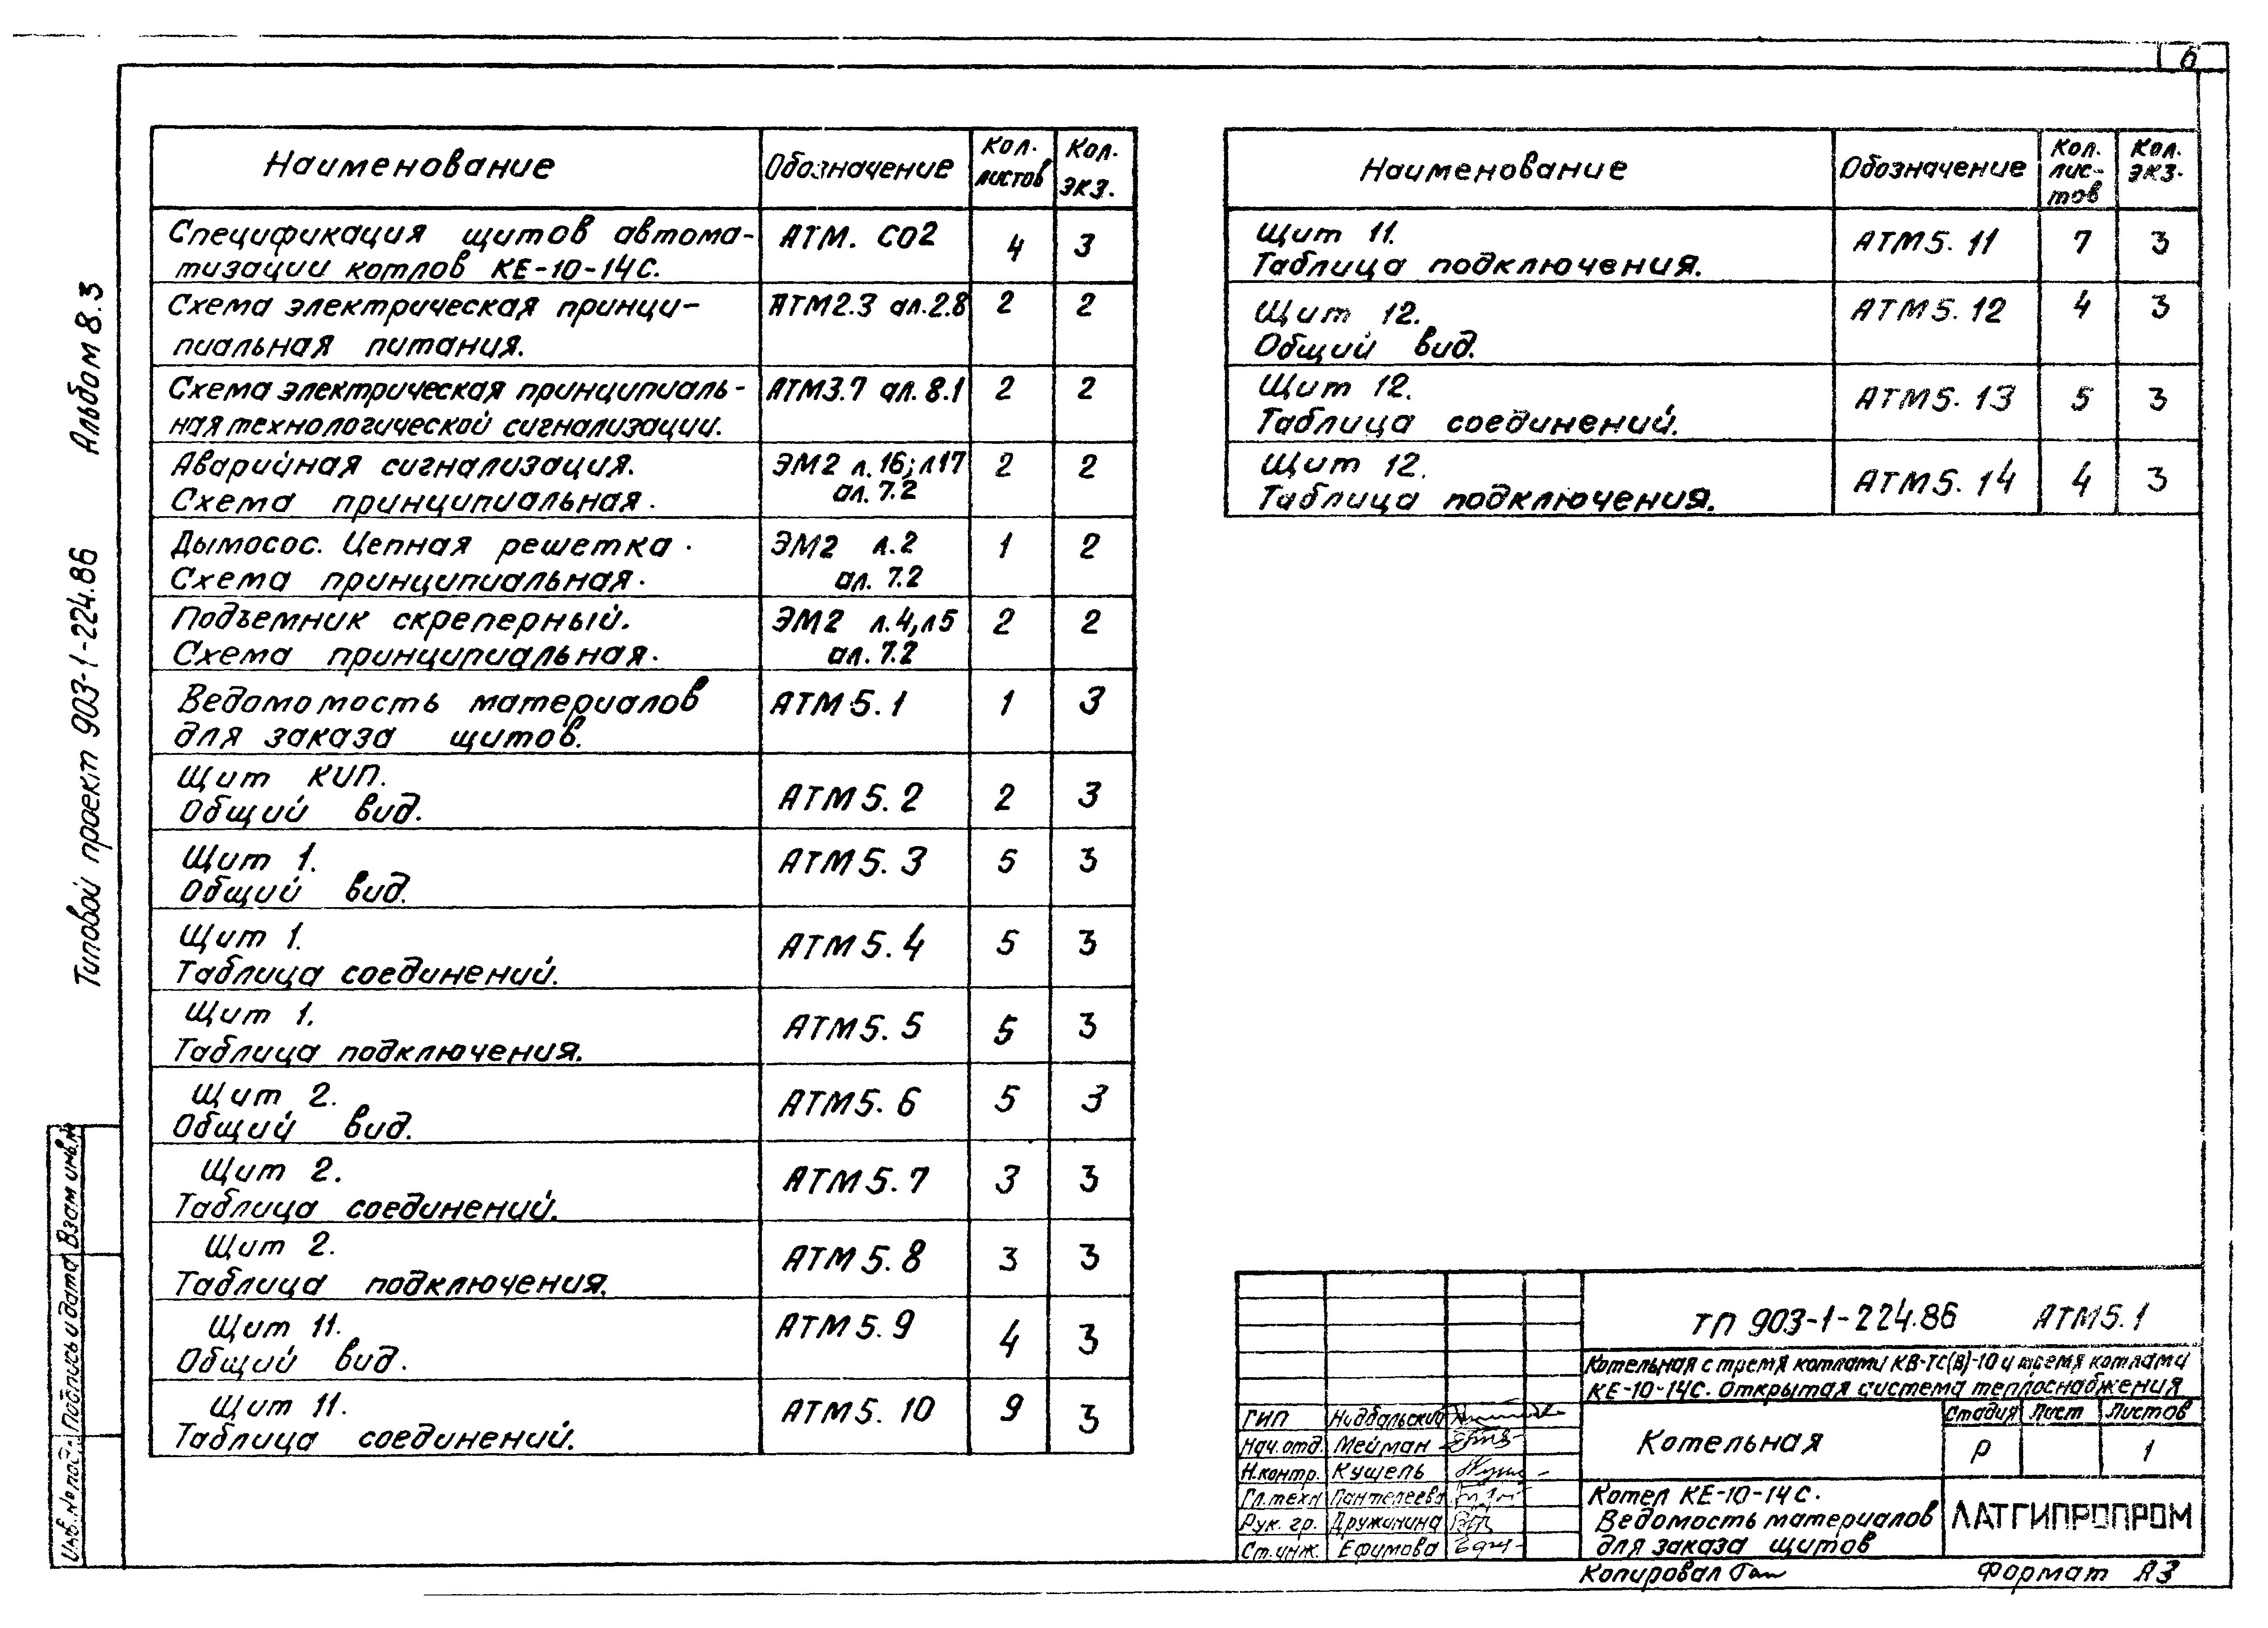 6
Альбом 8.3
Типовой проект 903-1-224.86
Наименование Обозначение Кол. листов Кол. экз.
Спецификация щитов автома- АТМ. СО2 4 3
тизации котлов КЕ-10-14С.
Схема электрическая принци- АТМ2.3 ал.2.8 2 2
пиальная питания.
Схема электрическая принципиаль- АТМ3.7 ал. 8.1 2 2
ная технологической сигнализации.
Аварийная сигнализация. ЭМ2 л.16; л17 2 2
Схема принципиальная. ал. 7.2
Дымосос. Цепная решетка. ЭМ2 л.2 1 2
Схема принципиальная. ал. 7.2
Подъемник скреперный. ЭМ2 л.4, л5 2 2
Схема принципиальная. ал. 7.2
Ведомомость материалов АТМ5.1 1 3
для заказа щитов.
Щит КИП. АТМ5.2 2 3
Общий вид.
Щит 1. АТМ5.3 5 3
Общий вид.
Щит 1. АТМ5.4 5 3
Таблица соединений.
Щит 1. АТМ5.5 5 3
Таблица подключения.
Щит 2. АТМ5.6 5 3
Общий вид.
Щит 2. АТМ5.7 3 3
Таблица соединений.
Щит 2. АТМ5.8 3 3
Таблица подключения.
Щит 11. АТМ5.9 4 3
Общий вид.
Щит 11. АТМ5.10 9 3
Таблица соединений.
Наименование Обозначение Кол. лис- тов Кол. экз.
Щит 11. АТМ5.11 7 3
Таблица подключения.
Щит 12. АТМ5.12 4 3
Общий вид.
Щит 12. АТМ5.13 5 3
Таблица соединений.
Щит 12. АТМ5.14 4 3
Таблица подключения.
ТП 903-1-224.86 АТМ5.1
Котельная с тремя котлами КВ-ТС(В)-10 и тремя котлами
КЕ-10-14С. Открытая система теплоснабжения
ГИП Нидбальский
Нач. отд. Мейман
Н.контр. Кущель
Гл.техн Пантелеева
Рук. гр. Дружинина
Ст. инж. Ефимова
Котельная
Стадия Лист Листов
Р 1
Котел КЕ-10-14С.
Ведомость материалов
для заказа щитов
ЛАТГИПРОПРОМ
Копировал
Формат А3
Инв. № подл. Подпись и дата Взам инв.№